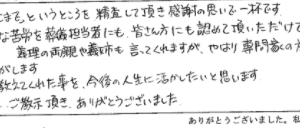 こまで。というところも精査して頂き感謝の思いで一杯です
な苦労を葬儀担当者にも、皆さん方にも認めて頂いただけで
義理の両親や義姉も言ってくれますが、やはり専門家の方
がします
教えてくれた事を、今後の人生に活かしたいと思います
ご教示頂き、ありがとうございました
ありがとうございました。私